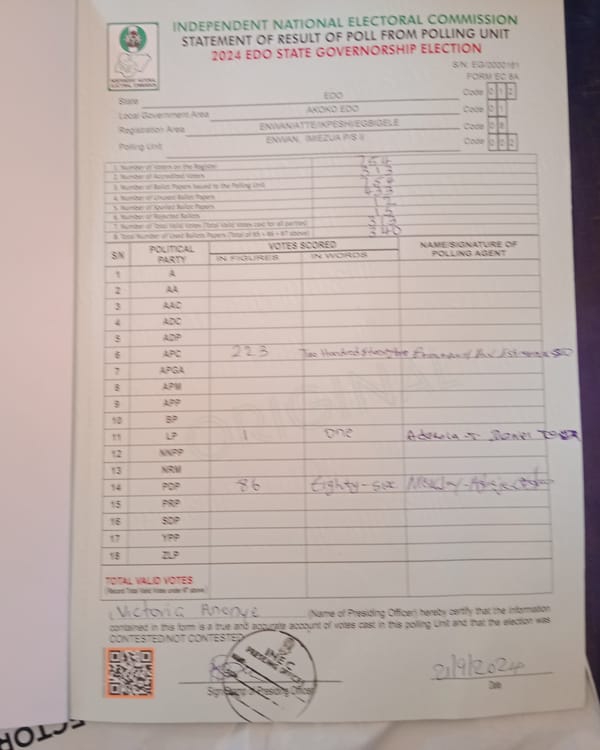 INDEPENDENT NATIONAL ELECTORAL COMMISSION
STATEMENT OF RESULT OF POLL FROM POLLING UNIT
2024 EDO STATE GOVERNORSHIP ELECTION
INDEPENDENT NATIONAL ELECTORAL COMMISSION
S/N: EG/0000161
FORM EC 8A
State EDO Code 0 1 2
Local Government Area AKOKO EDO Code 0 1
Registration Area ENWAN/ATTE/IKPESHI/EGBIGELE Code 0
Polling Unit ENWAN, IMIEZUA P/S I Code 0 0 2
1. Number of Voters on the Register 754
2. Number of Accredited Voters 313
3. Number of Ballot Papers Issued to the Polling Unit 754
4. Number of Unused Ballot Papers 433
5. Number of Spoiled Ballot Papers 12
6. Number of Rejected Ballots 15
7. Number of Total Valid Votes (Total Valid Votes cast for all parties) 313
8. Total Number of Used Ballot Papers (Total of #5 + #6 + #7 above) 340
S/N POLITICAL PARTY VOTES SCORED NAME/SIGNATURE OF POLLING AGENT
IN FIGURES IN WORDS
1 A
2 AA
3 AAC
4 ADC
5 ADP
6 APC 223 Two Hundred
7 APGA
8 APM
9 APP
10 BP
11 LP 1 one
12 NNPP
13 NRM
14 PDP 86 Eighty-six
15 PRP
16 SDP
17 YPP
18 ZLP
TOTAL VALID VOTES
(Record Total Valid Votes under #7 above)
I Victoria (Name of Presiding Officer) hereby certify that the information
contained in this form is a true and accurate account of votes cast in this polling Unit and that the election was
CONTESTED/NOT CONTESTED
INEC
PRESIDING OFFICER
21/9/2024
Signature of Presiding Officer Date